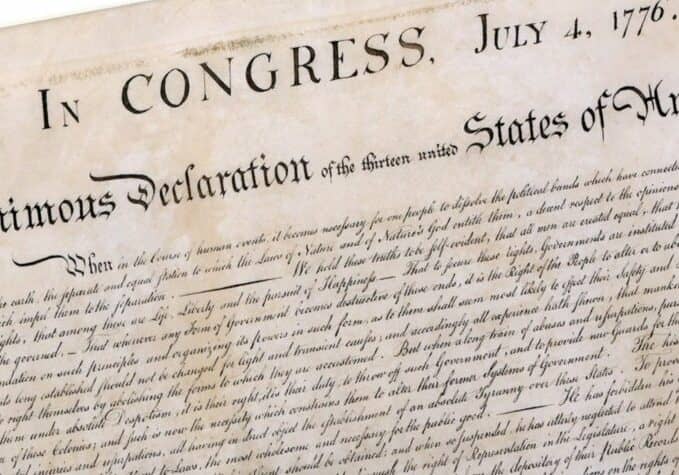 In CONGRESS, July 4, 1776.
Declaration of the thirteen united States of
When in the Course of human events, it becomes necessary for one people to dissolve the political bands which have connected
the earth, the separate and equal station to which the Laws of Nature and of Nature's God entitle them, a decent respect to the opinions
impel them to the separation. — We hold these truths to be self-evident, that all men are created equal, that
rights, that among these are Life, Liberty and the pursuit of Happiness.— That to secure these rights, Governments are instituted
the governed, — That whenever any Form of Government becomes destructive of these ends, it is the Right of the People to alter or to
on such principles and organizing its powers in such form, as to them shall seem most likely to effect their Safety and
long established should not be changed for light and transient causes; and accordingly all experience hath shewn, that
right themselves by abolishing the forms to which they are accustomed. But when a long train of abuses and usurpations,
them under absolute Despotism, it is their right, it is their duty, to throw off such Government, and to provide new Guards for
of these Colonies; and such is now the necessity which constrains them to alter their former Systems of Government. The
injuries and usurpations, all having in direct object the establishment of an absolute Tyranny over these States. To
to Laws, the most wholesome and necessary for the public good. — He has forbidden his
should be obtained; and when so suspended, he has utterly neglected to attend
the right of Representation in the Legislature, a right
the depository of their Public Records
the rights of